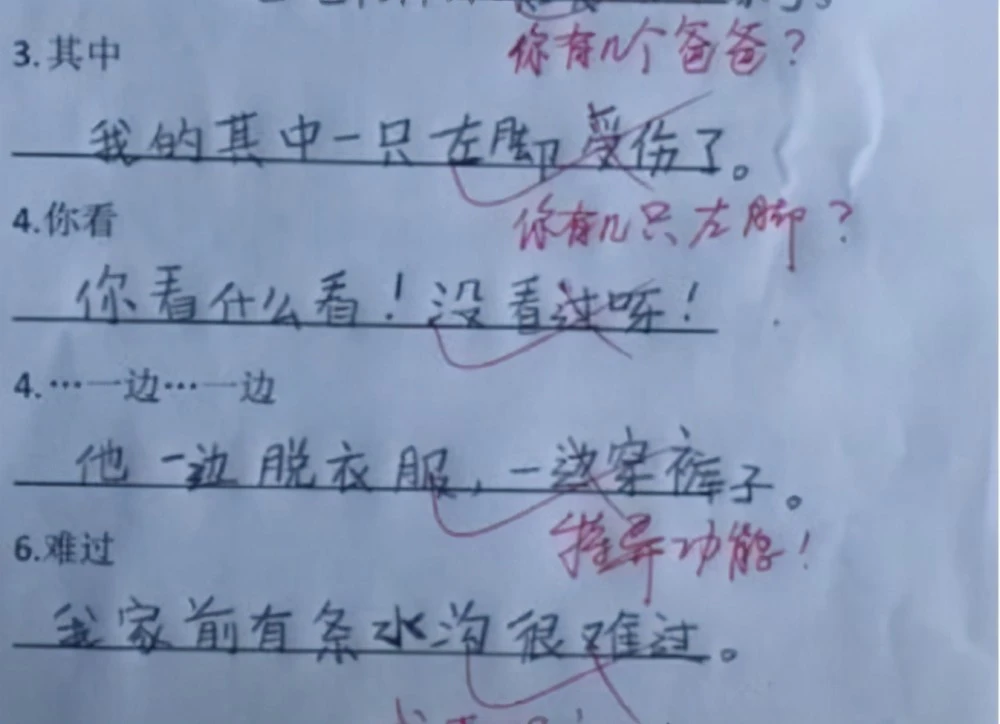 3.其中
你有几个爸爸？
我的其中一只左脚受伤了。
4.你看
你有几只左脚？
你看什么看！没看过呀！
4.…一边…一边
他一边脱衣服，一边穿裤子。
特异功能！
6.难过
我家前有条水沟很难过。